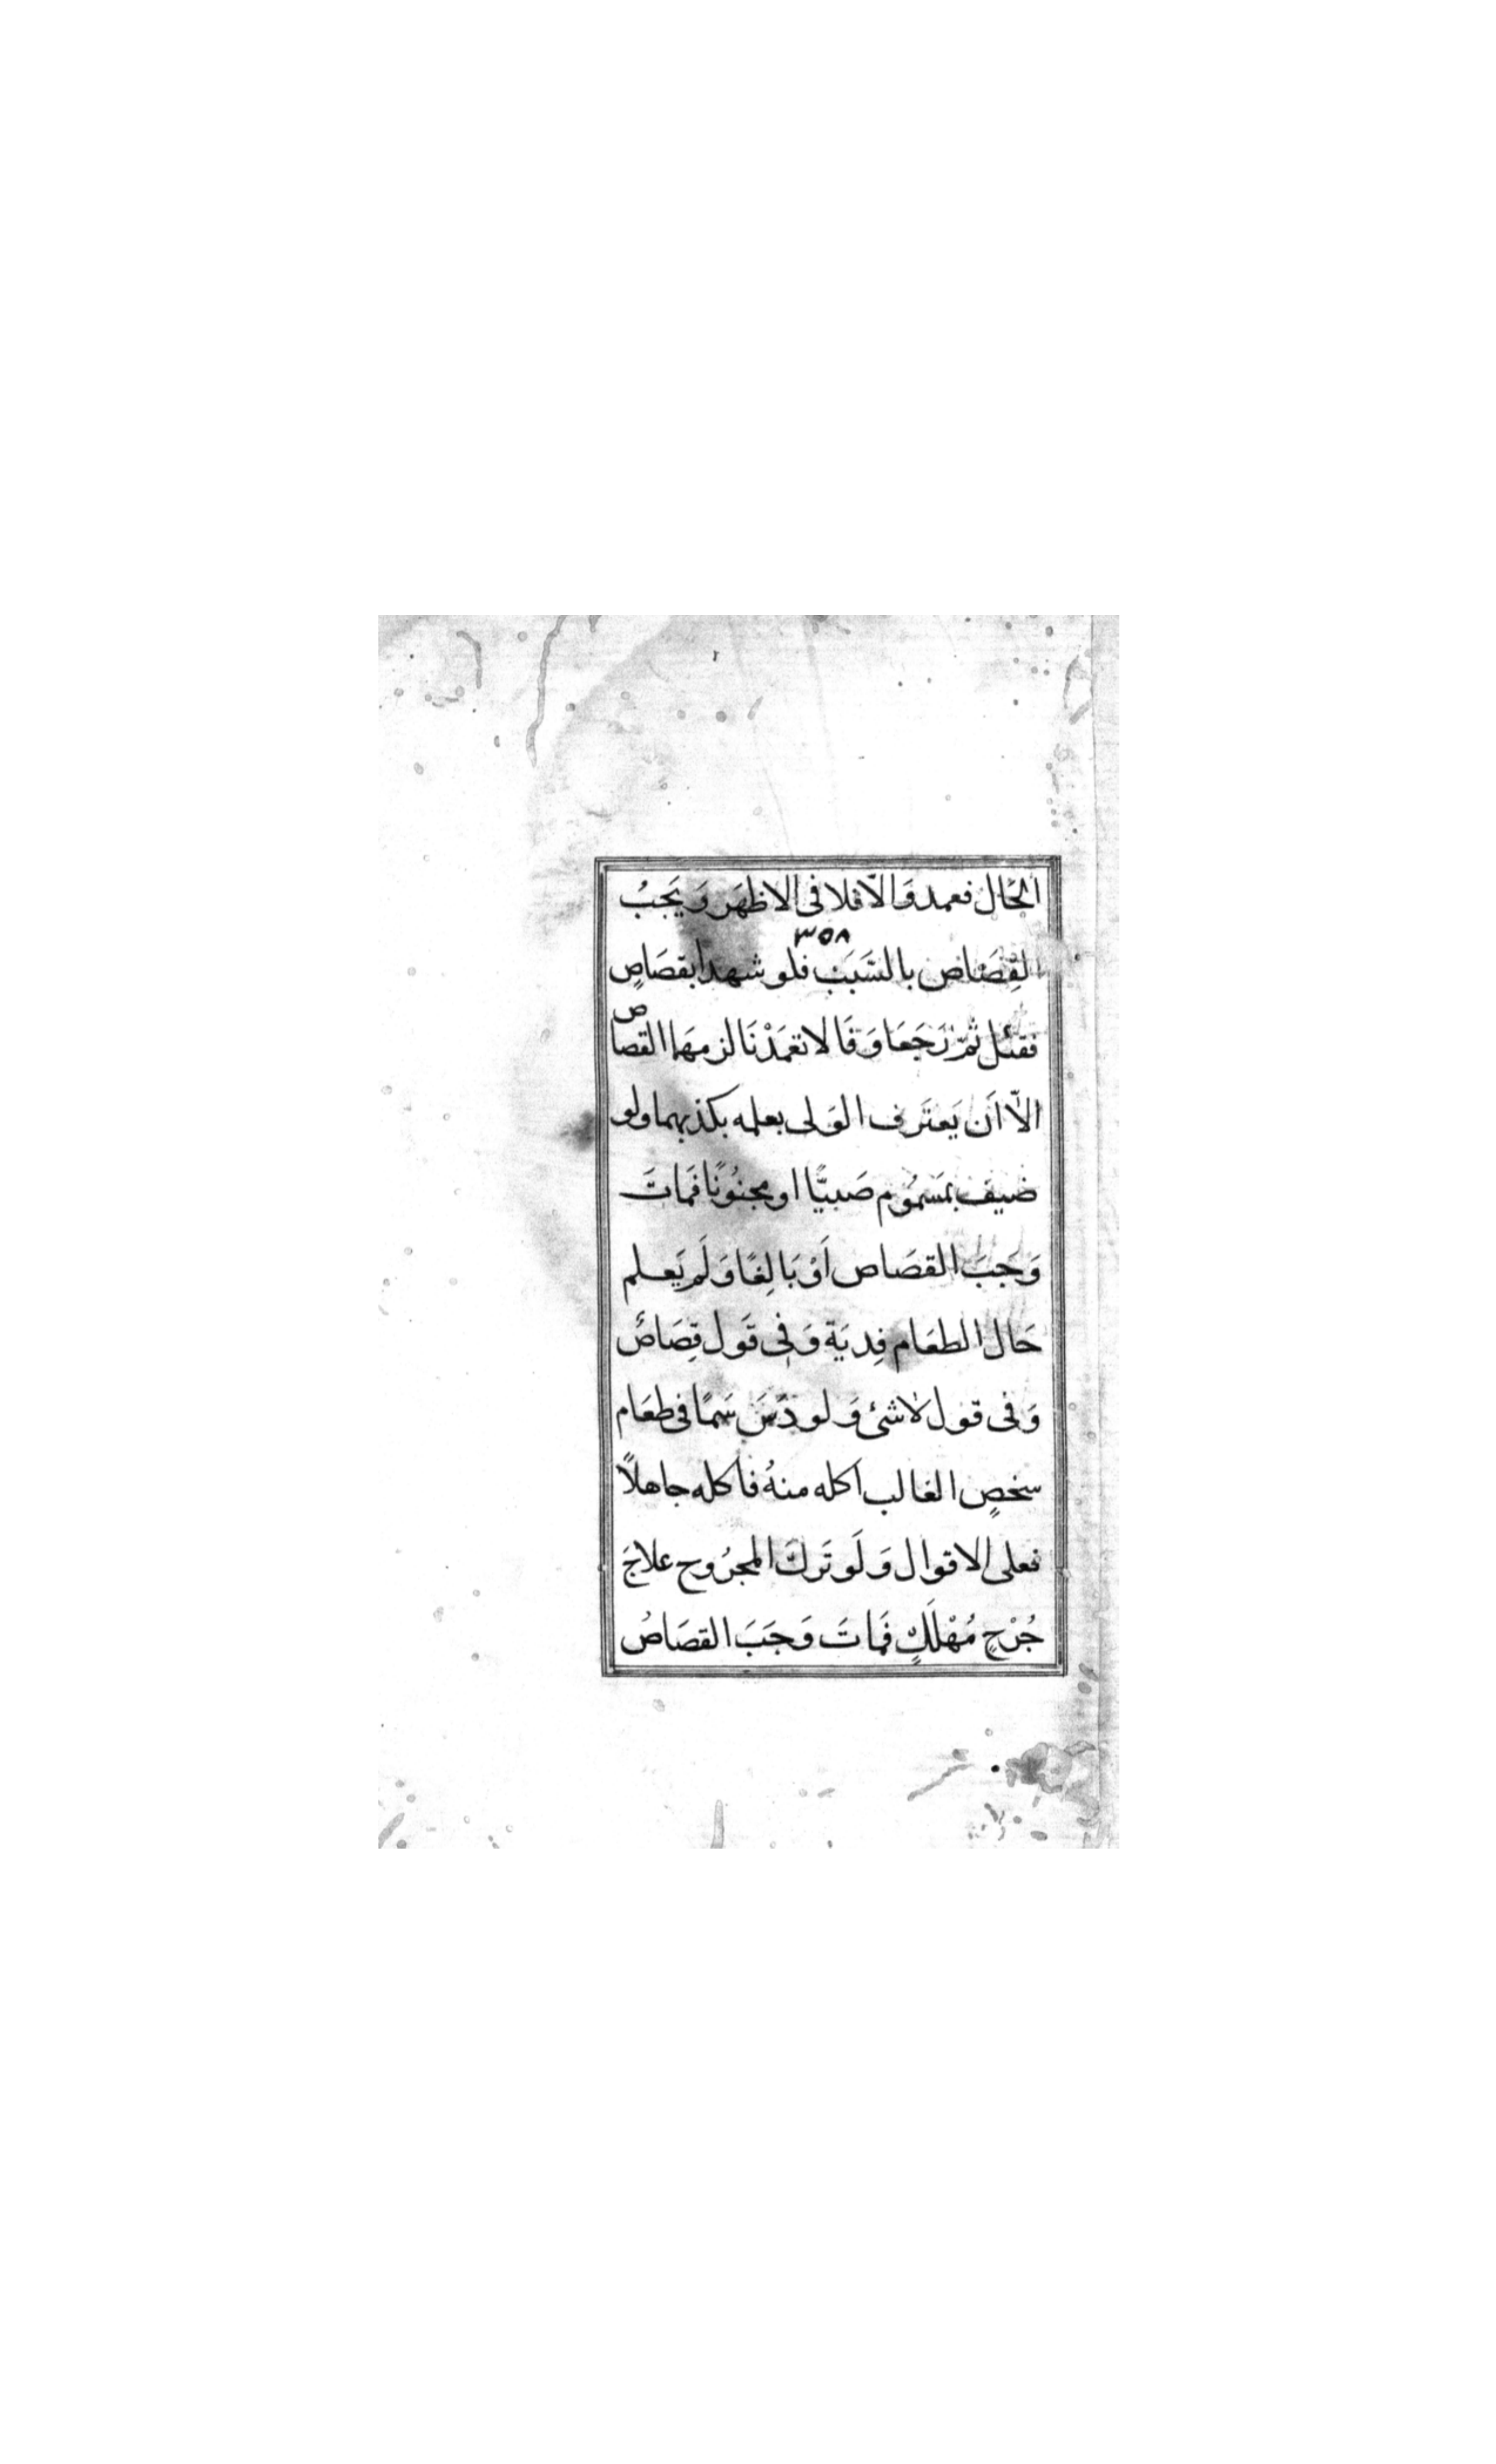 الحَال فعمد وَالّا فلا فى الاظهَر وَيَجبُ
٣٥٨
القِصَاص بالسَّبَب فلو شهدا بقصَاصٍ
فقتل ثمّ رَجَعَا وَقَالا تعمَدْنَا لزمهَما القصاص
الّا اَن يَعتَرف الوَلى بعلمه بكذبهما ولو
ضيف بمَسمُوم صَبيًّا او مجنُونًا فمَاتَ
وَجَبَ القصَاص اَوْ بَالِغًا وَلَم يَعلم
حَال الطعَام فِديَة وَفِى قَول قِصَاصٌ
وَفى قول لاشئ وَلو دَسَّ سَمًا فى طعَام
سخصٍ الغالب اكله منهُ فاكله جاهلًا
فعلى الاقوال وَلَو تَركَ المجرُوح علاجَ
جُرْحٍ مُهْلَكٍ فمَاتَ وَجَبَ القصَاصُ